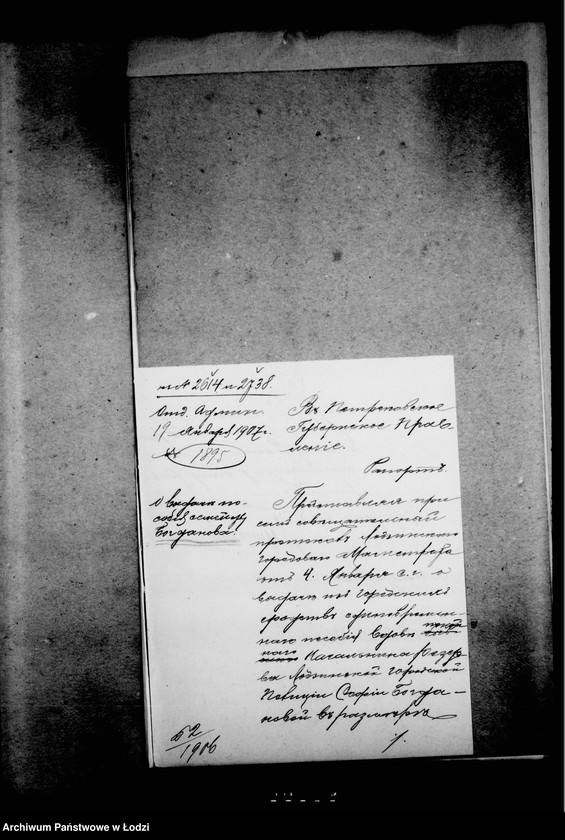 к № 2614 и 2738.
Отд. Админ.
19 Января 1907 г.
№ 1895
О выдаче по-
собія семейству
Богданова.
Въ Петроковское
Губернское Прав-
леніе.
Рапортъ.
Представляя при
семъ совѣщательный
протоколъ Лодзинскаго
городоваго Магистрата
отъ 4 Января с. г. о
выдачѣ изъ городскихъ
средствъ единовремен-
наго пособія вдовѣ
Начальника Резер-
ва Лодзинской городской
Полиціи Софіи Богда-
новой въ размѣрѣ
./.
52
1906
Archiwum Państwowe w Łodzi